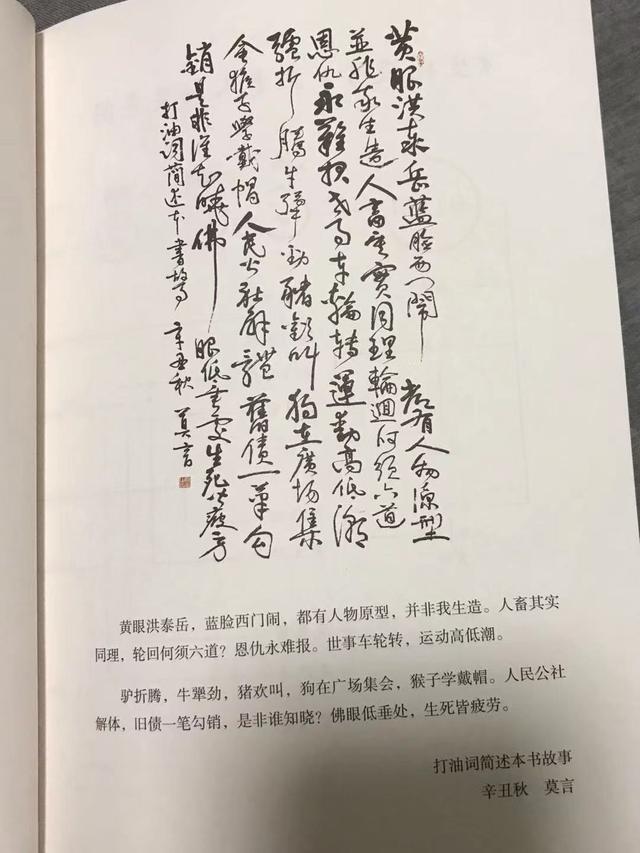 黄眼洪泰岳藍臉西门鬧都有人物原型
並非我生造人畜其實同理輪迴何須六道
恩仇永難报世事车輪转運動高低潮
驢折騰牛犟勁豬歡叫狗在廣場集
會猴子學戴帽人民公社解體舊債一筆勾
銷是非谁知曉佛眼低垂處生死皆疲劳
打油词简述本書故事 辛丑秋 莫言
黄眼洪泰岳，蓝脸西门闹，都有人物原型，并非我生造。人畜其实
同理，轮回何须六道？恩仇永难报。世事车轮转，运动高低潮。
驴折腾，牛犟劲，猪欢叫，狗在广场集会，猴子学戴帽。人民公社
解体，旧债一笔勾销，是非谁知晓？佛眼低垂处，生死皆疲劳。
打油词简述本书故事
辛丑秋 莫言